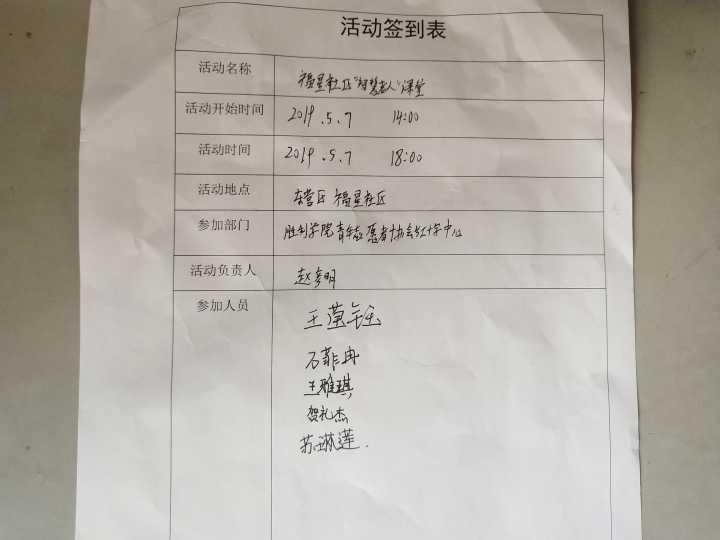 活动签到表
活动名称 福星社区"智慧老人"课堂
活动开始时间 2019.5.7 14:00
活动时间 2019.5.7 18:00
活动地点 东营区 福星社区
参加部门 胜利学院青年志愿者协会红十字中心
活动负责人 赵参明
参加人员 王莹钰
石菲冉
王雅琪
贺礼杰
苏琳莲.